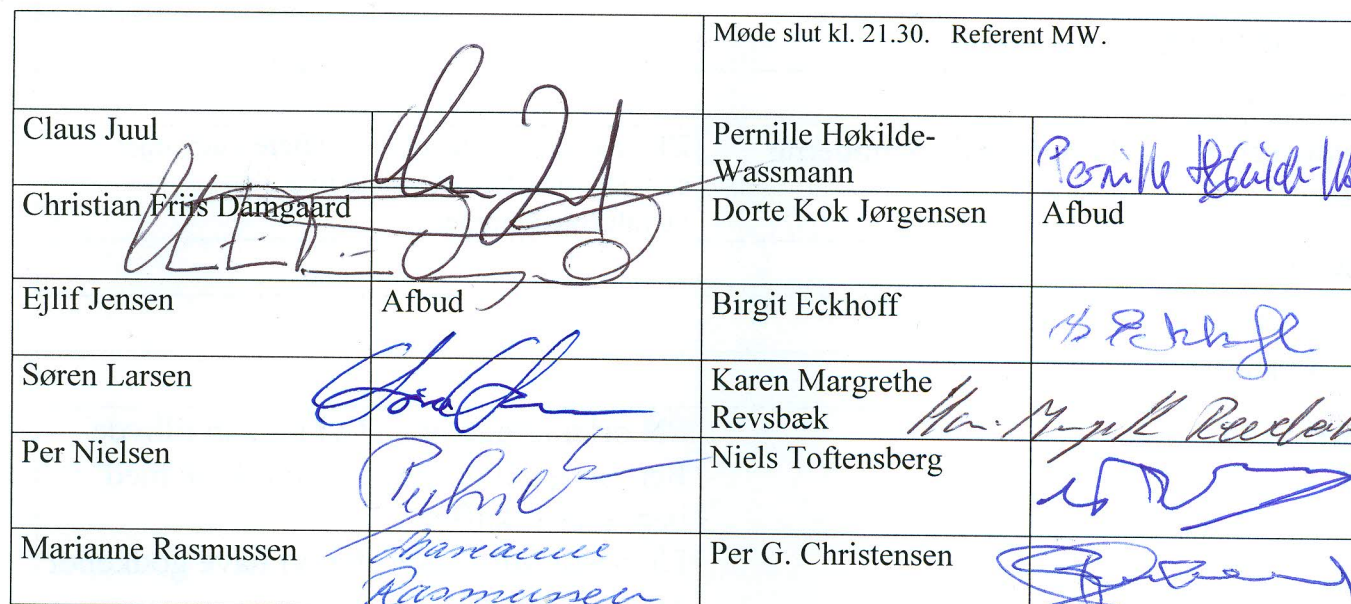 Møde slut kl. 21.30. Referent MW.
Claus Juul
Pernille Høkilde-
Wassmann
Pernille
Christian Friis Damgaard
Dorte Kok Jørgensen
Afbud
Ejlif Jensen
Afbud
Birgit Eckhoff
B Eckhoff
Søren Larsen
Karen Margrethe
Revsbæk
Per Nielsen
Niels Toftensberg
Marianne Rasmussen
Marianne
Rasmussen
Per G. Christensen